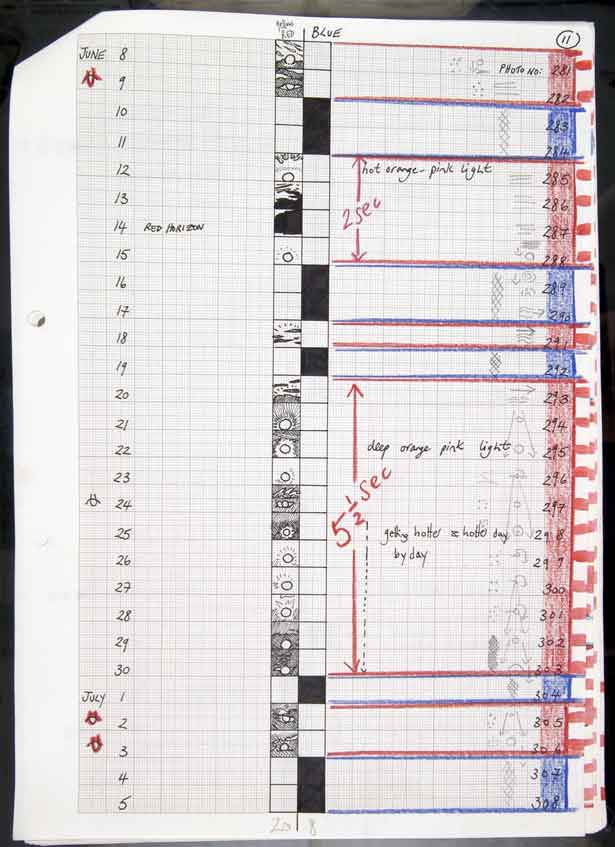 YELLOW RED
BLUE
11
JUNE 8
PHOTO NO: 281
9
282
10
283
11
284
12
hot orange - pink light
285
13
286
2 sec
14 RED HORIZON
287
15
288
16
289
17
290
18
291
19
292
20
293
21
294
22
deep orange pink light
295
23
296
5 1/2 sec
24
297
25
getting hotter & hotter day
298
by day
26
299
27
300
28
301
29
302
30
303
JULY 1
304
2
305
3
306
4
307
5
308
20 8